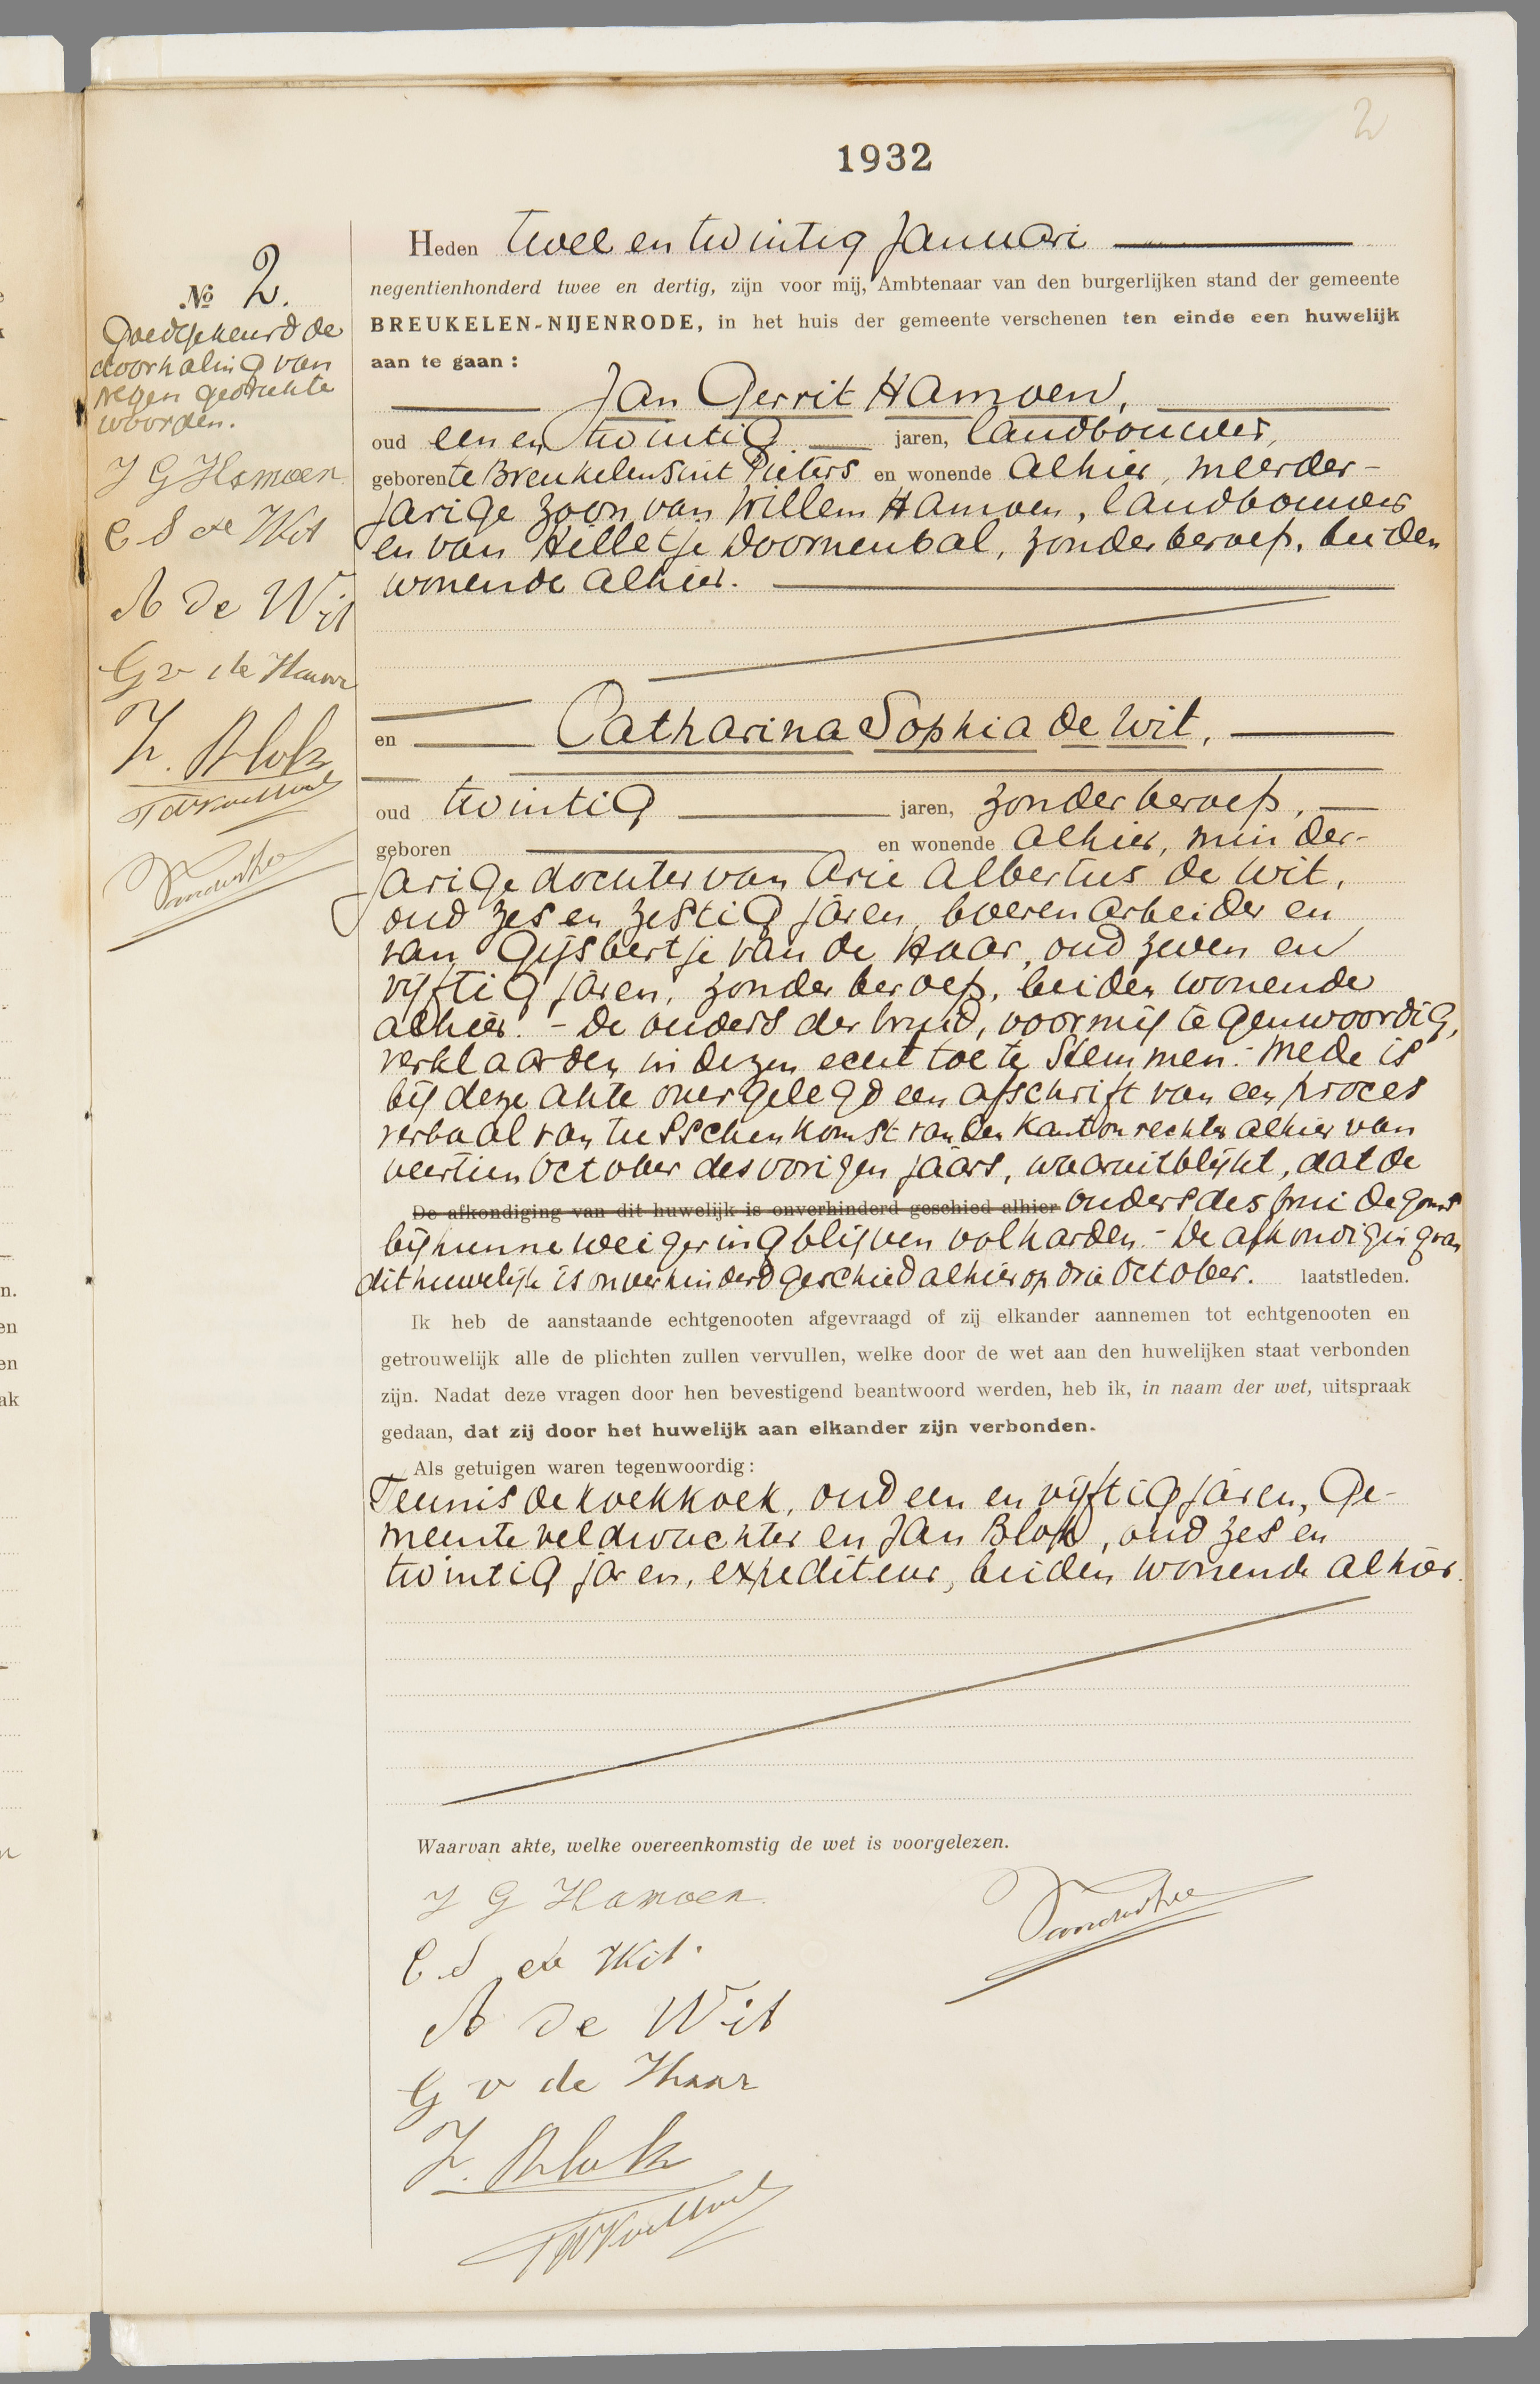 2
1932
Heden twee en twintig Januari
negentienhonderd twee en dertig, zijn voor mij, Ambtenaar van den burgerlijken stand der gemeente
BREUKELEN-NIJENRODE, in het huis der gemeente verschenen ten einde een huwelijk
aan te gaan:
Jan Gerrit Hamoen,
oud een en twintig jaren, landbouwer,
geboren te Breukelen Sint Pieters en wonende alhier, meerder-
jarige zoon van Willem Hamoen, landbouwer
en van Hilletje Doornenbal, zonder beroep, beiden
wonende alhier.
en Catharina Sophia de Wit,
oud twintig jaren, zonder beroep,
geboren en wonende alhier, minder-
jarige dochter van Arie Albertus de Wit,
oud zes en zestig jaren, boerenarbeider en
van Gijsbertje van de Haar, oud zeven en
vijftig jaren, zonder beroep, beiden wonende
alhier. - De ouders der bruid, voor mij tegenwoordig,
verklaarden in dezen echt toe te stemmen. - Mede is
bij deze akte overgelegd een afschrift van een proces
verbaal van tusschenkomst van den Kantonrechter alhier van
veertien October des vorigen jaars, waaruit blijkt, dat de
De afkondiging van dit huwelijk is onverhinderd geschied alhier ouders des bruidegoms
bij hunne weigering blijven volharden. - De afkondiging van
dit huwelijk is onverhinderd geschied alhier op drie October. laatstleden.
Ik heb de aanstaande echtgenooten afgevraagd of zij elkander aannemen tot echtgenooten en
getrouwelijk alle de plichten zullen vervullen, welke door de wet aan den huwelijken staat verbonden
zijn. Nadat deze vragen door hen bevestigend beantwoord werden, heb ik, in naam der wet, uitspraak
gedaan, dat zij door het huwelijk aan elkander zijn verbonden.
Als getuigen waren tegenwoordig:
Teunis de Koekkoek, oud een en vijftig jaren, Ge-
meenteveldwachter en Jan Blok, oud zes en
twintig jaren, expediteur, beiden wonende alhier.
Waarvan akte, welke overeenkomstig de wet is voorgelezen.
J G Hamoen
C. S de Wit
A de Wit
G v de Haar
J. Blok
TdKoekkoek
No 2.
Goedgekeurd de
doorhaling van
negen gedrukte
woorden.
J G Hamoen
C S de Wit
A de Wit
G v de Haar
J. Blok
TdKoekkoek